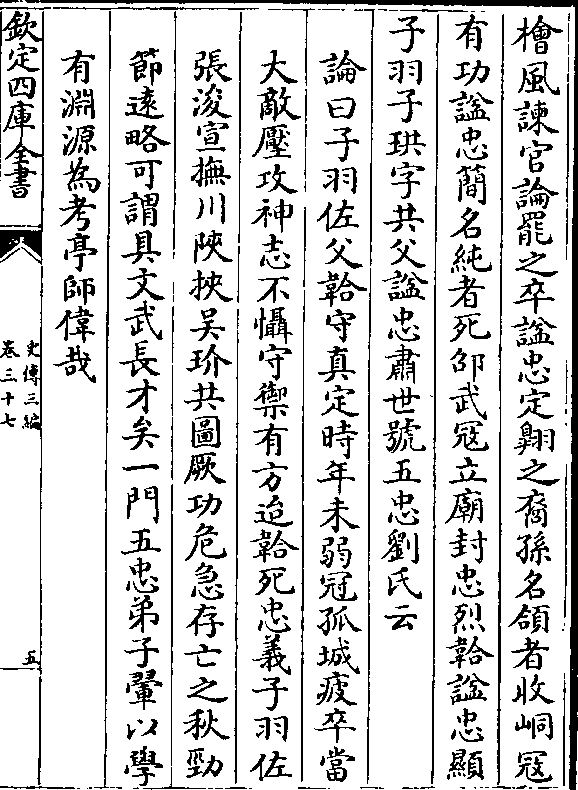 檜風諫官論罷之卒諡忠定翺之裔孫名頜者收峒冦
有功諡忠簡名純者死邵武冦立廟封忠烈韐諡忠顯
子羽子珙字共父諡忠肅世號五忠劉氏云
論曰子羽佐父韐守真定時年未弱冠孤城疲卒當
大敵壓攻神志不懾守禦有方迨韐死忠義子羽佐
張浚宣撫川陜挾吴玠共圖厥功危急存亡之秋勁
節逺略可謂具文武長才矣一門五忠弟子翬以學
有淵源為考亭師偉哉
欽定四庫全書
史傳三編
卷三十七
五